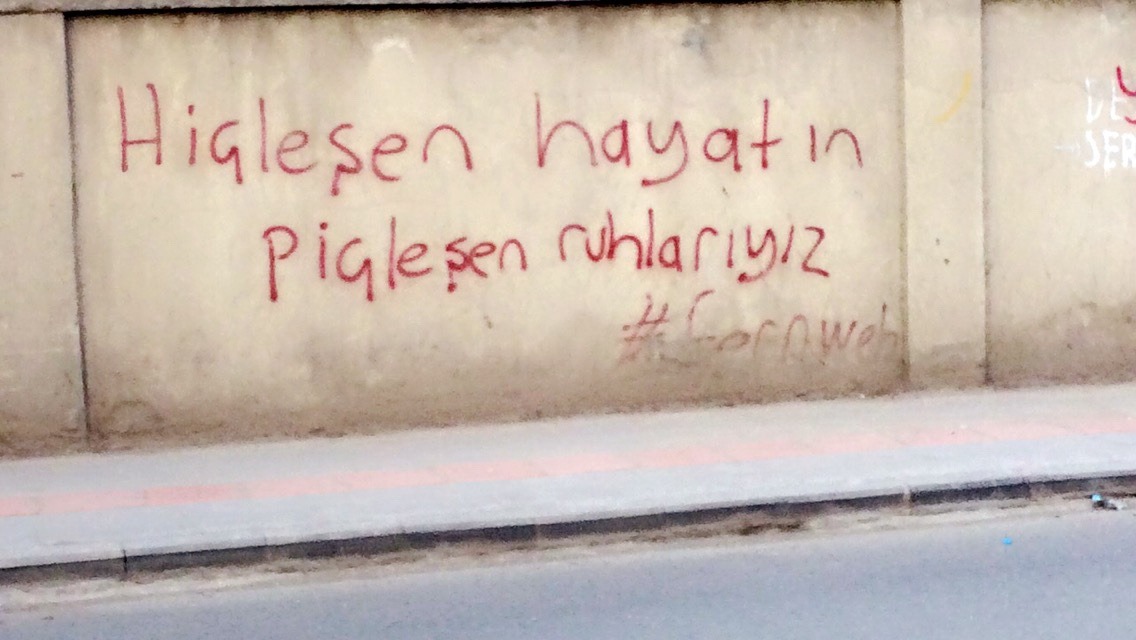 Hiçleşen hayatın
piçleşen ruhlarıyız
#fernweh